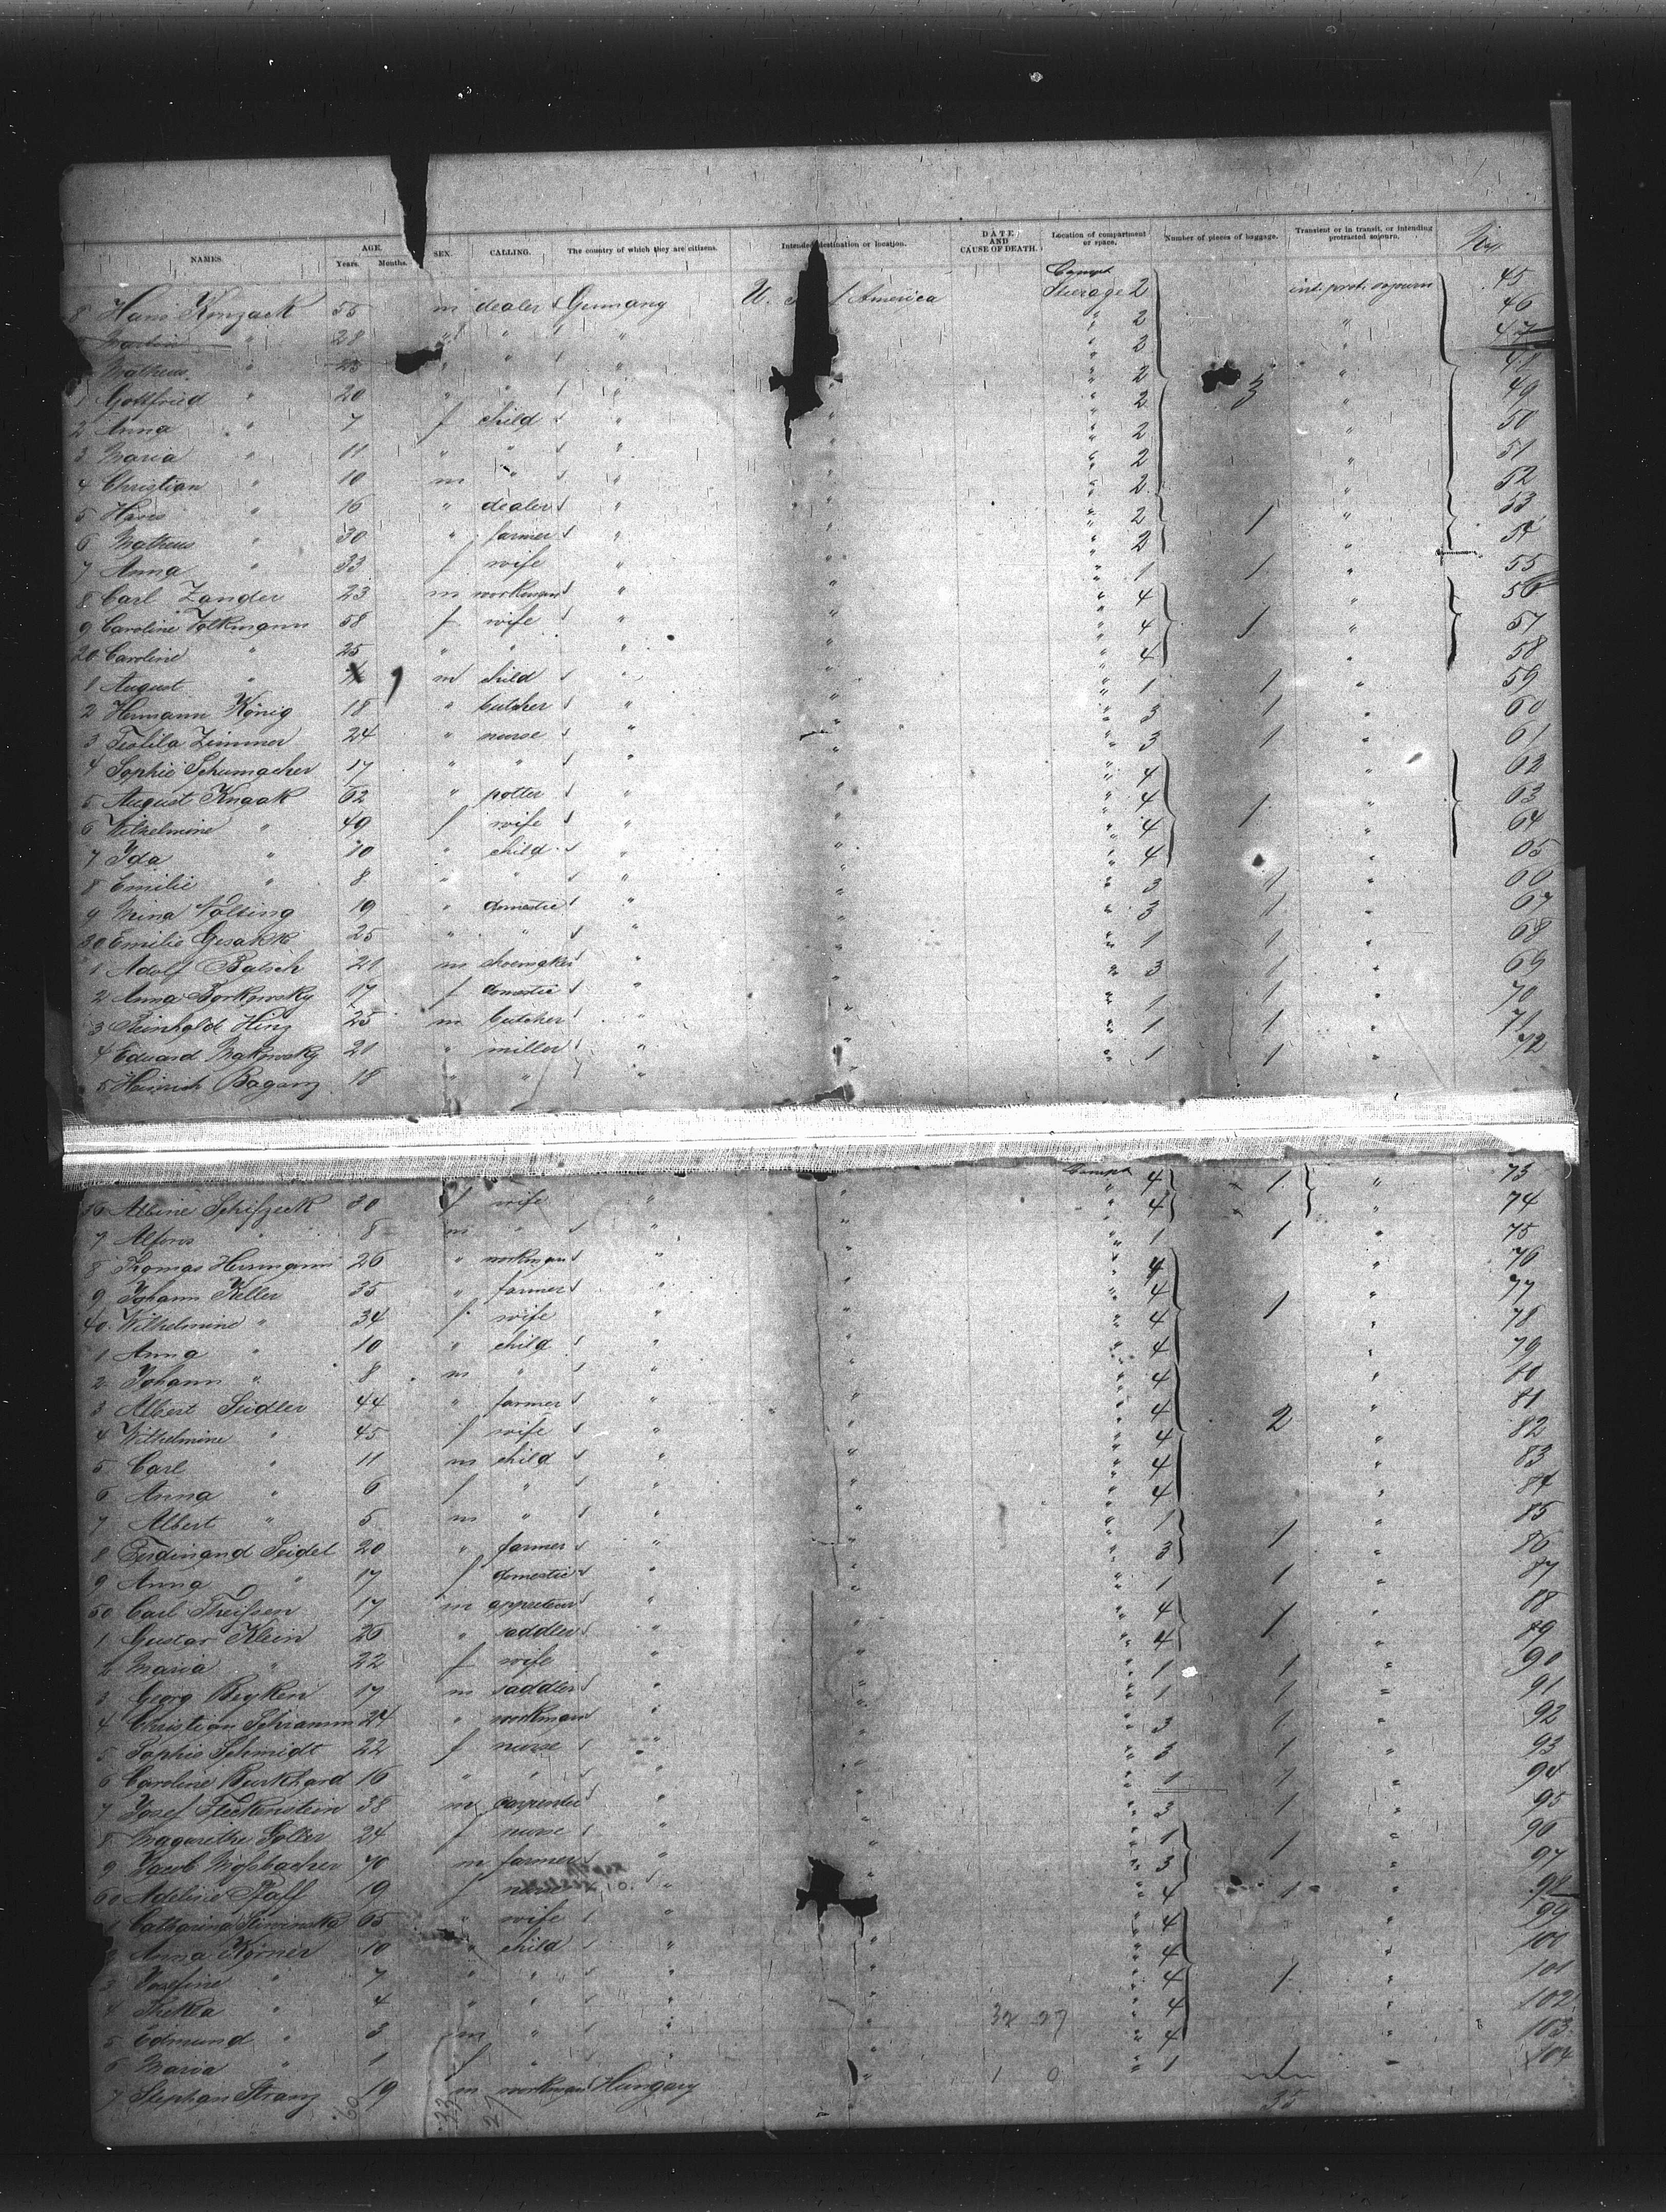 NAMES. AGE. Years. Months. SEX. CALLING. The country of which they are citizens. Intended destination or location. DATE AND CAUSE OF DEATH. Location of compartment or space. Number of pieces of baggage. Transient or in transit, or intending protracted sojourn.
8 Hans Konzack 55 m dealer Germany U. America Compt Steerage 2 int. prot. sojourn 45
Martin " 28 " " " 2 " 46
Matheus " " " " 2 " 47
1 Gottfried " 20 " " " 2 3 " 48
2 Anna " 7 f child " 2 " 49
3 Maria " 11 " " " 2 " 50
4 Christian " 10 m " " 2 " 51
5 Hans " 16 " dealer " 2 " 52
6 Matheus " 30 " farmer " 2 1 " 53
7 Anna " 33 f wife " 2 " 54
8 Carl Zander 23 m workman " 1 1 " 55
9 Caroline Volkmann 58 f wife " 4 " 56
20 Caroline " 25 " " " 4 1 " 57
1 August " m child " 4 " 58
2 Hermann König 18 " butcher " 1 1 " 59
3 Teofila Zimmer 24 " nurse " 3 1 " 60
4 Sophie Schumacher 17 " " " 3 1 " 61
5 August Knaak 62 " potter " 4 " 62
6 Wilhelmine " 49 f wife " 4 1 " 63
7 Ida " 10 " child " 4 " 64
8 Emilie " 8 " " " 4 " 65
9 Mina Nölting 19 " domestic " 3 1 " 66
30 Emilie 25 " " " 3 1 " 67
1 Adolf Batsch 21 m shoemaker " 1 1 " 68
2 Anna Borkowsky 17 f domestic " 3 1 " 69
3 Reinhold Hinz 25 m butcher " 1 1 " 70
4 Eduard Makowsky 21 " miller " 1 1 " 71
5 Heinrich Baganz 18 " " " 1 1 " 72
36 Albine 30 f wife " Compt 4 1 " 73
7 Alfons " 8 m " " 4 " 74
8 Thomas Herrmann 26 " workman " 1 1 " 75
9 Johann Keller 35 " farmer " 4 " 76
40 Wilhelmine " 34 f wife " 4 1 " 77
1 Anna " 10 " child " 4 " 78
2 Johann " 8 m " " 4 " 79
3 Albert Seidler 44 " farmer " 4 " 80
4 Wilhelmine " 45 f wife " 4 2 " 81
5 Carl " 11 m child " 4 " 82
6 Anna " 6 f " " 4 " 83
7 Albert " 5 m " " 4 " 84
8 Ferdinand Seidel 20 " farmer " 1 1 " 85
9 Anna " 17 f domestic " 3 " 86
50 Carl Theissen 17 m " 1 1 " 87
1 Gustav Klein 26 " saddler " 4 1 " 88
2 Maria " 22 f wife " 4 " 89
3 Georg 17 m saddler " 1 1 " 90
4 Christian Schramm 24 " workman " 1 1 " 91
5 Sophie Schmidt 22 f nurse " 3 1 " 92
6 Caroline Burkhard 16 " " " 3 1 " 93
7 Josef Fleckenstein 38 m carpenter " 1 1 " 94
8 Magarethe 24 f nurse " 3 1 " 95
9 Jacob Mossbacher 40 m farmer " 1 1 " 96
60 Adeline Pfaff 19 f nurse " 3 " 97
1 Catharina 65 " wife " 4 1 " 98
2 Anna Körner 10 " child " 4 " 99
3 Josefine " 7 " " " 4 " 100
4 Thekla " 4 " " " 4 1 " 101
5 Edmund " 3 m " " 4 " 102
6 Maria " 1 f " " 4 " 103
7 Stephan Stranz 19 m workman Hungary 1 1 " 104
32 27
1 0
60 33 27 35